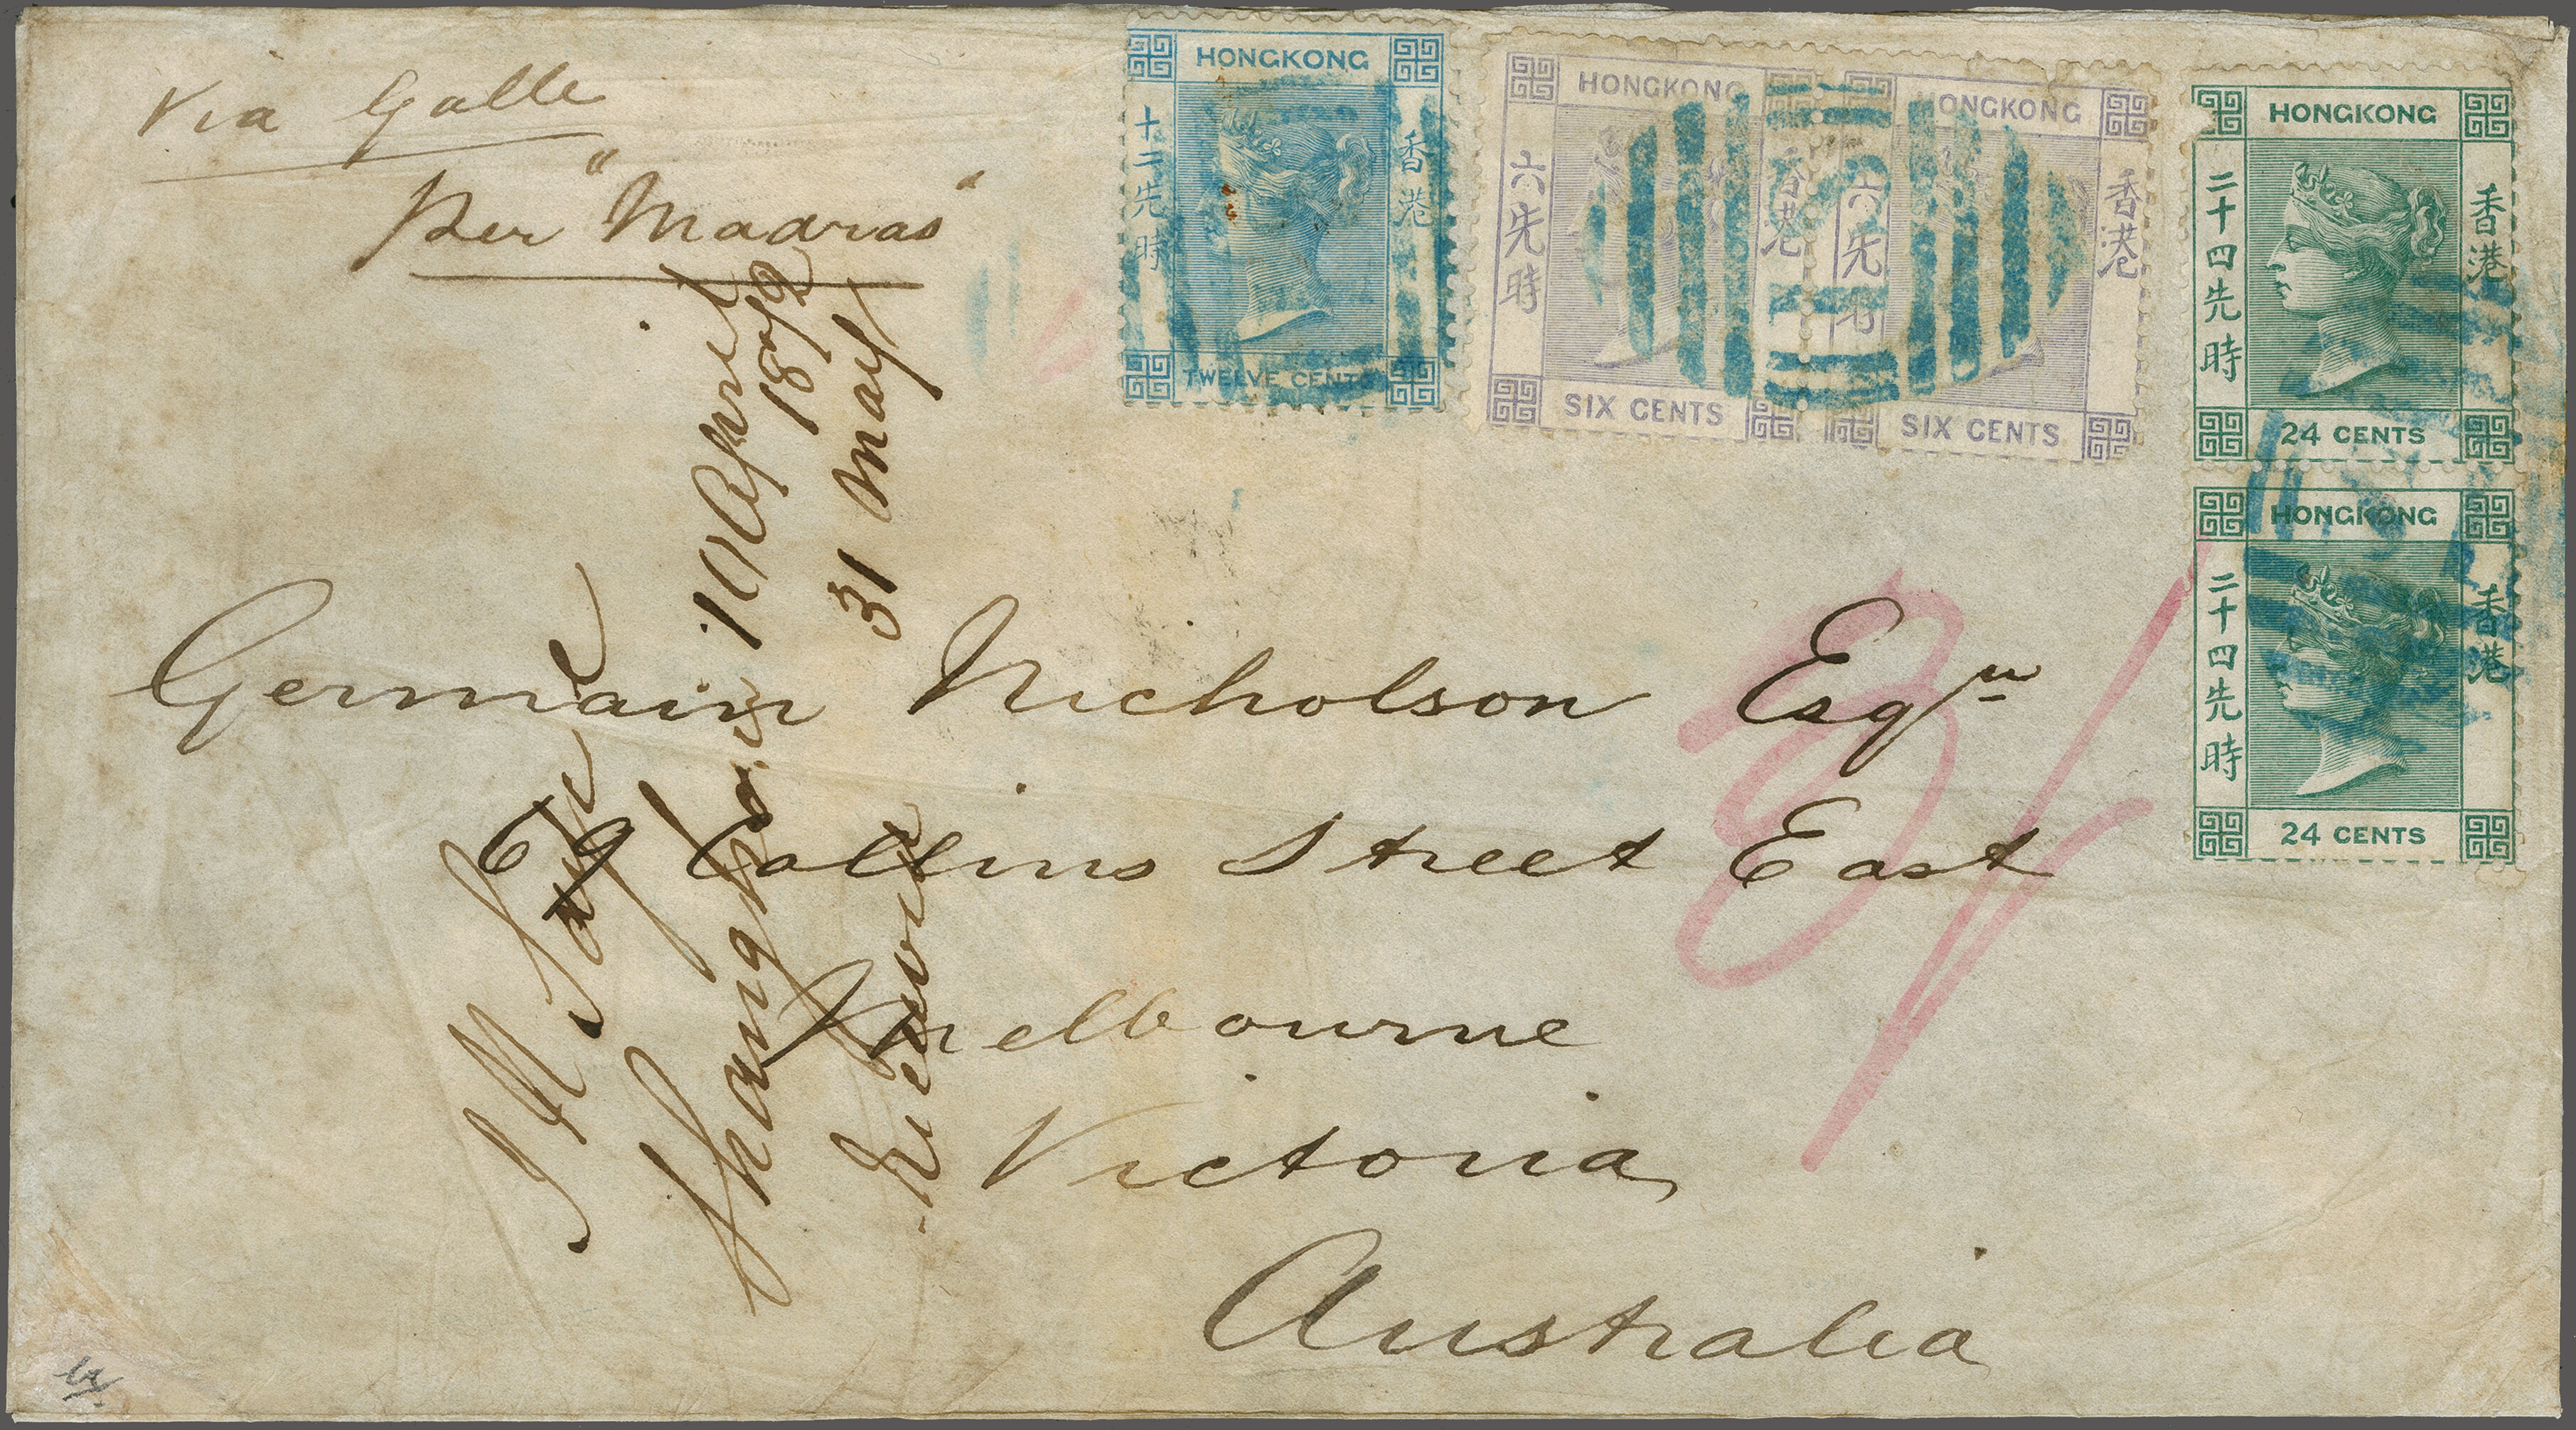 Via Galle
Per "Madras"
HONGKONG
十二先時
香港
TWELVE CENTS
HONGKONG
六先時
香港
SIX CENTS
HONGKONG
六先時
香港
SIX CENTS
HONGKONG
二十四先時
香港
24 CENTS
HONGKONG
二十四先時
香港
24 CENTS
Germain Nicholson Esqre
69 Collins Street East
Melbourne
Victoria
Australia
3/
Shanghai 10 April
1872
31 May